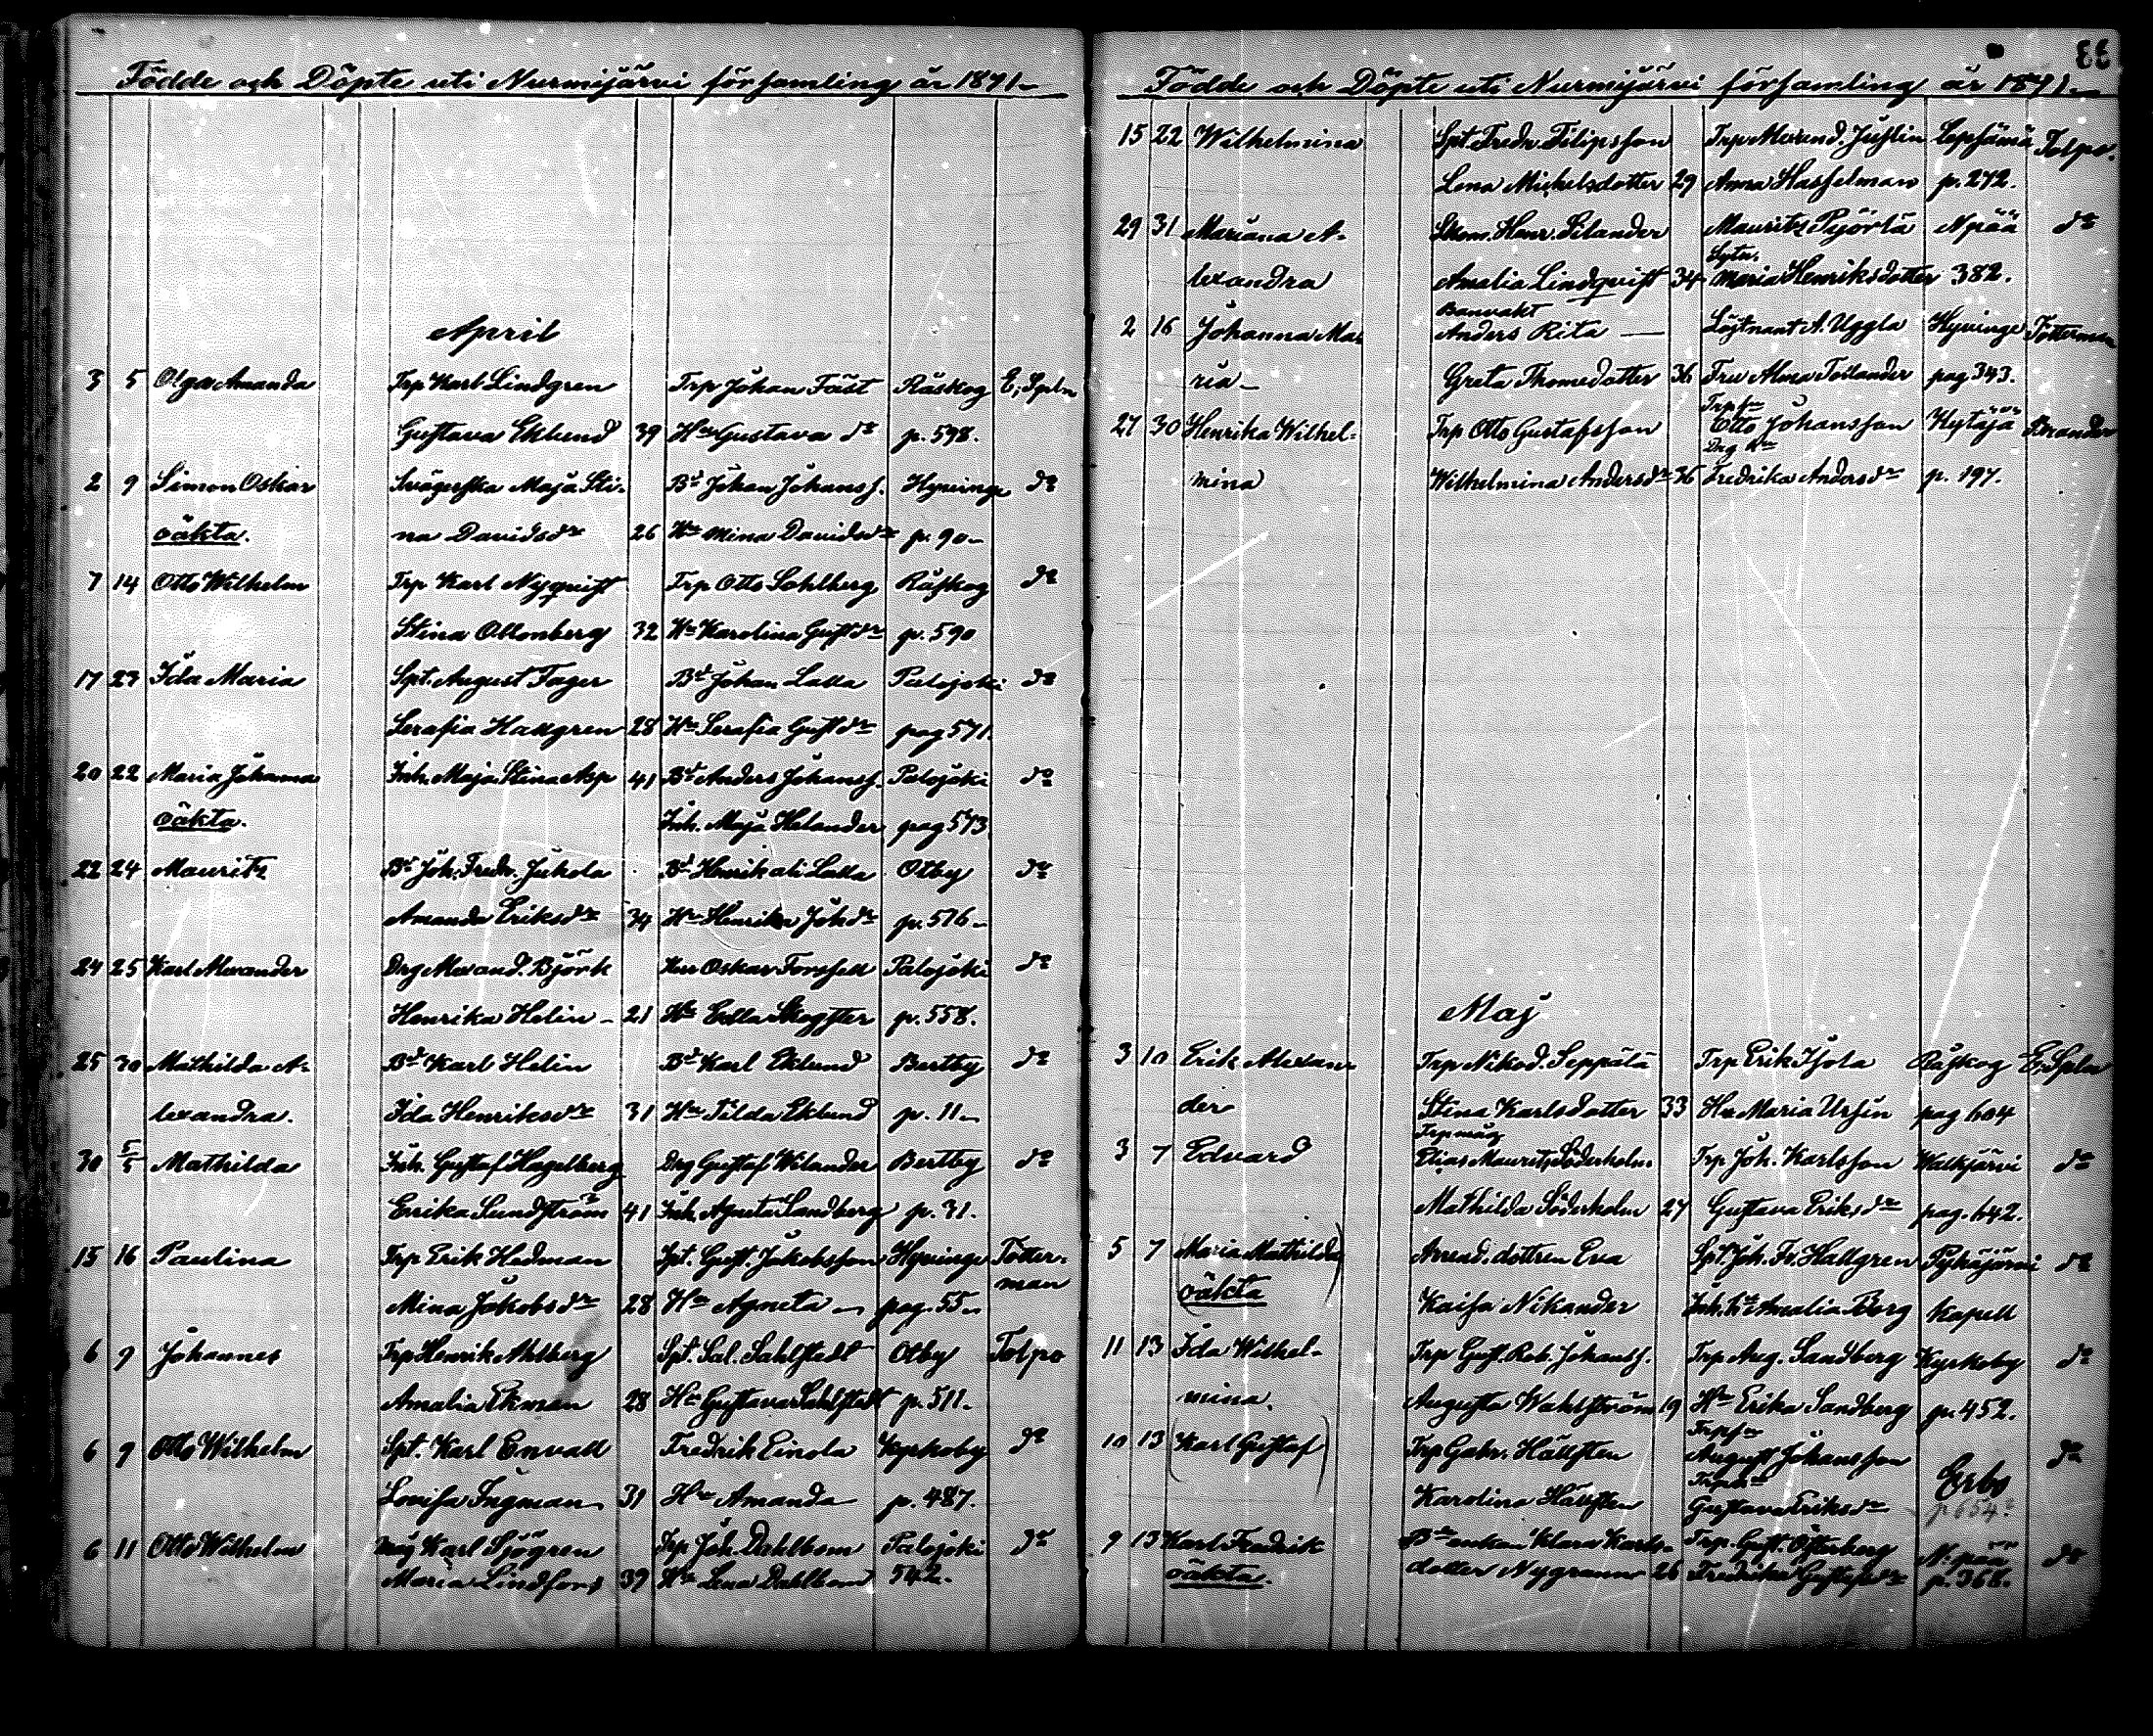 Födde och Döpte uti Nurmijärvi församling år 1871.
April
3 5 Olga Amanda Trp Karl Lindgren Trp Johan Fäst Råskog E. Spln
Gustava Eklund 39 Hu Gustava do p. 598.
2 9 Simon Oskar Svägerska Maja Sti- Bd Johan Johanss. Hyvinge do
oäkta. na Davidsdr 26 Hu Mina Davidsdr p. 90
7 14 Otto Wilhelm Trp Karl Nyqvist Trp Otto Sohlberg Råskog do
Stina Ollonberg 32 Hu Karolina Gustdr p. 590
17 23 Ida Maria Spt. August Fager Bd Johan Lalla Palojoki do
Serafia Hallgren 28 Hu Serafia Gustdr pag 571.
20 22 Maria Johanna Inh. Maja Stina Asp 41 Bd Anders Johanss. Palojoki do
oäkta. Inh. Maja Helander pag 573
22 24 Mauritz Bd Joh. Fredr. Jukola Bd Henrik Ali Lalla Otby do
Amanda Eriksdr 34 Hu Henrika Johdr p. 576
24 25 Karl Alexander Drg Alexand. Björk Herr Oskar Forssell Palojoki do
Henrika Helin 21 Hu Edla Skogster p. 558.
25 30 Mathilda A- Bd Karl Helin Bd Karl Eklund Bertby do
lexandra. Ida Henriksdr 31 Hu Tilda Eklund p. 11
30 5/5 Mathilda Inh. Gustaf Hagelberg Drg Gustaf Wilander Bertby do
Erika Sundström 41 Inh. Agneta Sandberg p. 31.
15 16 Paulina Trp Erik Hedman Spt. Gust. Jakobsson Hyvinge Totter-
man
Mina Jakobsdr 28 Hu Agneta pag. 55
6 9 Johannes Trp Henrik Ahlberg Spt. Sal. Sahlstedt Otby Tolpo
Amalia Ekman 28 Hu Gustava Sahlstedt p. 511.
6 9 Otto Wilhelm Spt. Karl Envall Fredrik Einola Kyrkoby do
Lovisa Ingman 31 Hu Amanda p. 487.
6 11 Otto Wilhelm Måg Karl Sjögren Trp Joh. Dahlbom Palojoki do
Maria Lindfors 39 Hu Lena Dahlbom 542.
33
Födde och Döpte uti Nurmijärvi församling år 1871.
15 22 Wilhelmina Spt. Fredr. Filipsson Trp Alexand. Justin Lepsämä Tolpo.
Lena Mickelsdotter 29 Anna Hasselman p. 272.
29 31 Mariana A- Skom. Henr. Silander Mauritz Pyörlä Npää do
Sytn.
lexandra Amalia Lindqvist 34 Maria Henriksdotter 382.
Banvakt
2 16 Johanna Ma- Anders Rita Löjtnant A. Uggla Hyvinge Totterman
ria Greta Thomedotter 36 Fru Alma Tollander pag 343.
Trp sn
27 30 Henrika Wilhel- Trp Otto Gustafsson Otto Johansson Hytäjä Brander
Drg Hu
mina Wilhelmina Andersdr 36 Fredrika Andersdr p. 197.
Maj
3 10 Erik Alexan- Trp Nikod. Seppälä Trp Erik Isola Råskog E. Spln
der Stina Karlsdotter 33 Hu Maria Ursin pag 604
Trp måg
3 7 Edvard Elias Maurits Söderholm Trp Joh. Karlsson Walkjärvi do
Mathilda Söderholm 27 Gustava Eriksdr pag. 642.
5 7 Maria Mathilda Arrend. dottren Eva Spt. Joh. Fr. Hallgren Pyhäjärvi do
oäkta Kaisa Nikander Inh. hu Amalia Berg kapell
11 13 Ida Wilhel- Trp Gust. Rob. Johanss. Trp Aug. Sandberg Kyrkoby do
mina. Augusta Wahlström 19 Hu Erika Sandberg p. 452.
Trp sn
10 13 Karl Gustaf Trp Gabr. Hällsten August Johansson do
Erbo
Karolina Hällsten Gustava Eriksdr p 654
9 13 Karl Fredrik Bde enkan Klara Karls- Trp. Gust. Österberg N. pää do
oäkta. dotter Nygrann 26 Fredrika Gustafsdr p. 368.